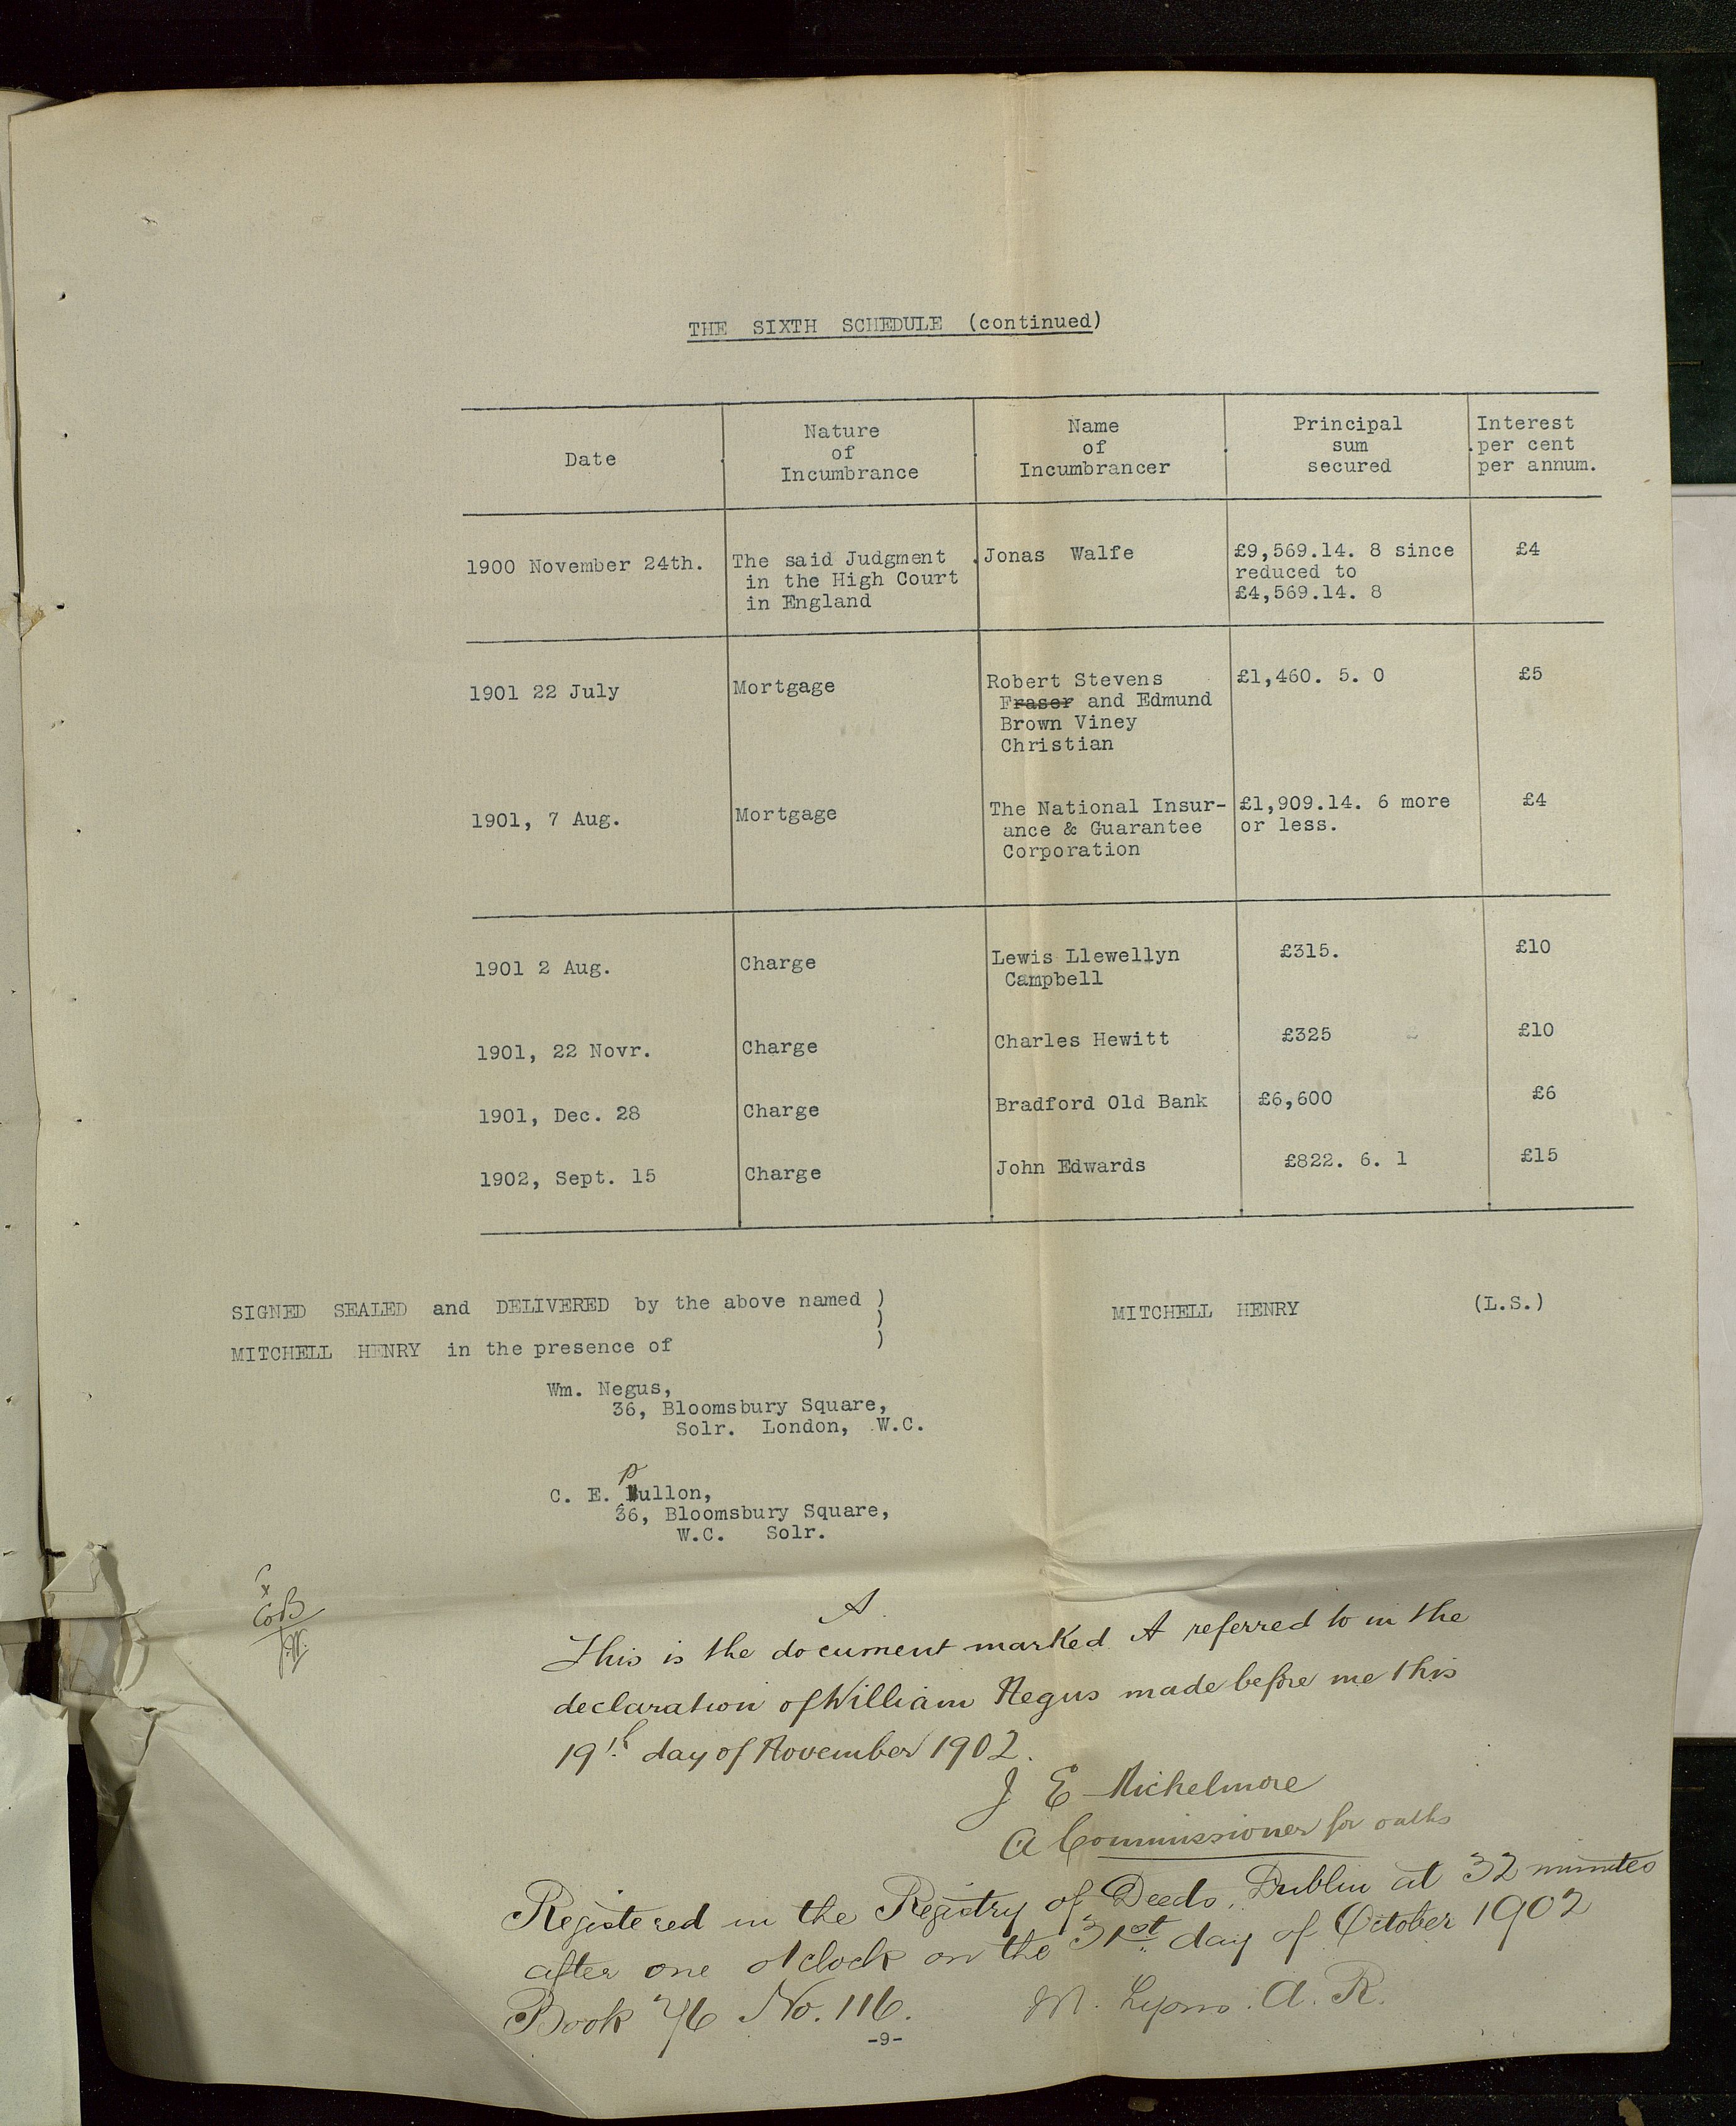 THE SIXTH SCHEDULE (continued)
Date
Nature
of
Incumbrance
Name
of
Incumbrancer
Principal
sum
secured
Interest
per cent
per annum.
1900 November 24th.
The said Judgment
in the High Court
in England
Jonas Walfe
£9,569.14. 8 since
reduced to
£4,569.14. 8
£4
1901 22 July
Mortgage
Robert Stevens
Fraser and Edmund
Brown Viney
Christian
£1,460. 5. 0
£5
1901, 7 Aug.
Mortgage
The National Insur-
ance & Guarantee
Corporation
£1,909.14. 6 more
or less.
£4
1901 2 Aug.
Charge
Lewis Llewellyn
Campbell
£315.
£10
1901, 22 Novr.
Charge
Charles Hewitt
£325
£10
1901, Dec. 28
Charge
Bradford Old Bank
£6,600
£6
1902, Sept. 15
Charge
John Edwards
£822. 6. 1
£15
SIGNED SEALED and DELIVERED by the above named )
)
MITCHELL HENRY in the presence of )
MITCHELL HENRY (L.S.)
Wm. Negus,
36, Bloomsbury Square,
Solr. London, W.C.
C. E. Pullon,
36, Bloomsbury Square,
W.C. Solr.
A
This is the document marked A referred to in the
declaration of William Negus made before me this
19th day of November 1902.
J E Michelmore
A Commissioner for oaths
Registered in the Registry of Deeds, Dublin at 32 minutes
after one o'clock on the 31st day of October 1902
Book 76 No. 116.
M. Lyons. A. R.
-9-